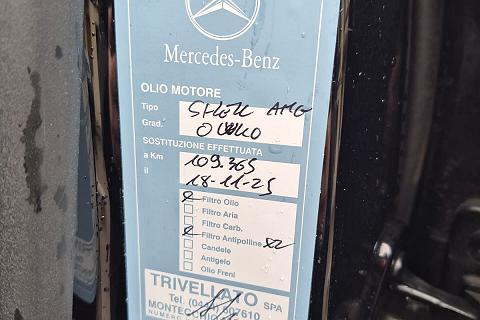 Mercedes-Benz
OLIO MOTORE
Tipo SHELL AMG
Grad. 0W40
SOSTITUZIONE EFFETTUATA
a Km 109.365
il 18-11-25
Filtro Olio
Filtro Aria
Filtro Carb.
Filtro Antipolline x2
Candele
Antigelo
Olio Freni
TRIVELLATO SPA
Tel. (0444)
MONTECCHIO
NUMERO